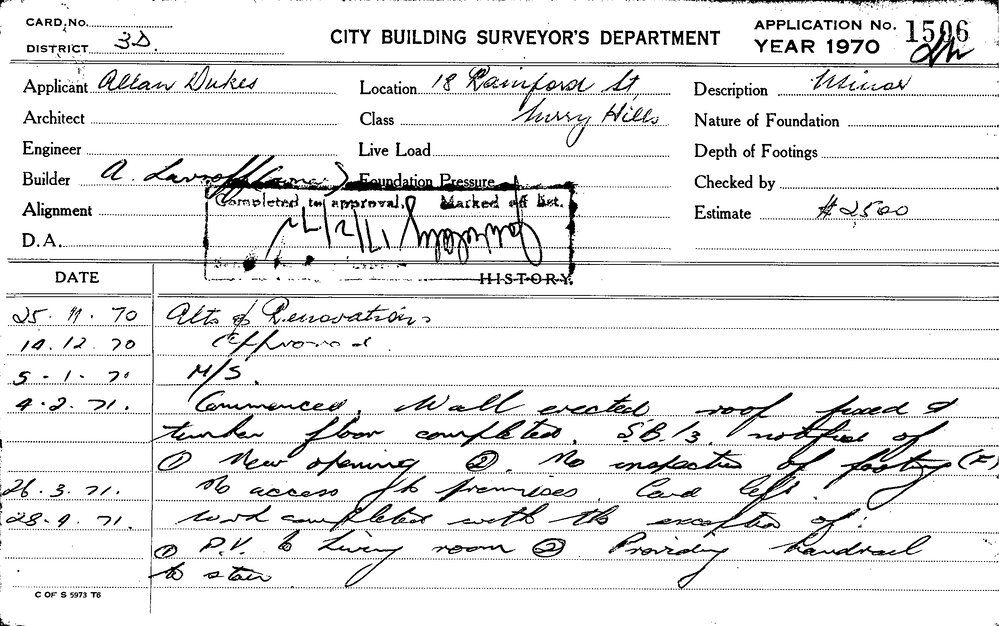 CARD. No.
DISTRICT 3D.
CITY BUILDING SURVEYOR'S DEPARTMENT
APPLICATION No. 1506
YEAR 1970
Applicant Allan Dukes
Location 18 Rainford St,
Description Minor
Architect
Class Surry Hills
Nature of Foundation
Engineer
Live Load
Depth of Footings
Builder A.
Foundation Pressure
Checked by
Completed to approval. Marked off list.
Alignment
Estimate $2500
D.A.
HISTORY.
DATE
25. 11. 70 Alts & Renovations
14. 12. 70 Approved.
5 - 1 - 71 M/S.
4-2-71. Commenced. Wall erected roof fixed &
timber floor completed. S.B.13. notified of
① New opening ②. No inspection of footing
26. 3. 71. No access to premises. Card left.
28-4-71. Work completed with the exception of:
① P.V. to Living room ② Providing handrail
to stair
C OF S 5973 T6